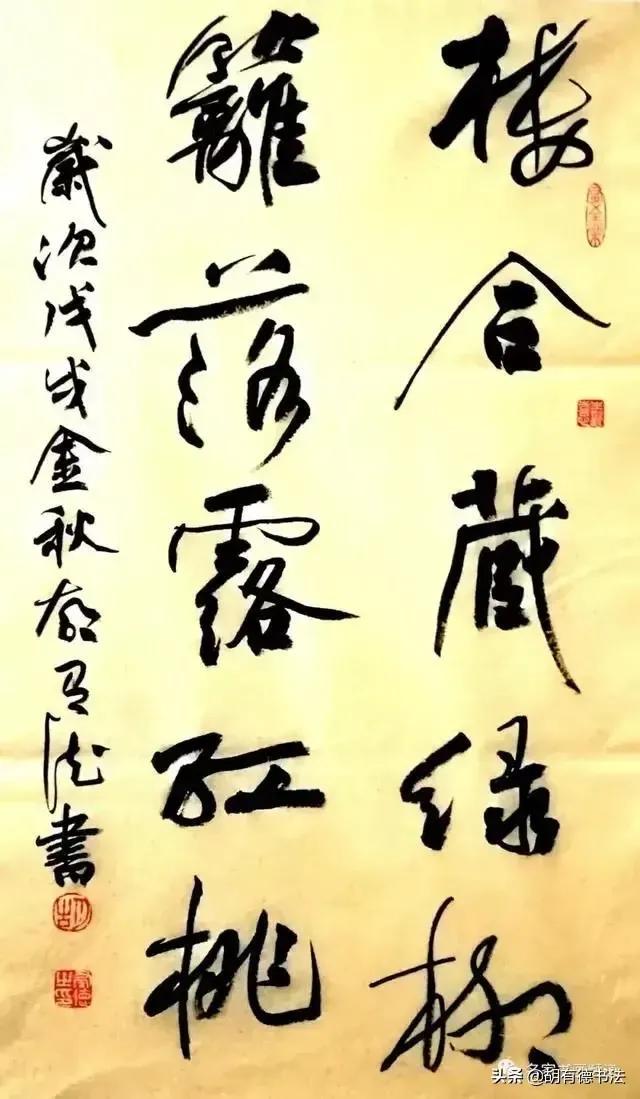 楼合藏绿柳
籬落露红桃
歲次戊戌金秋胡有德書
头条 @胡有德书法